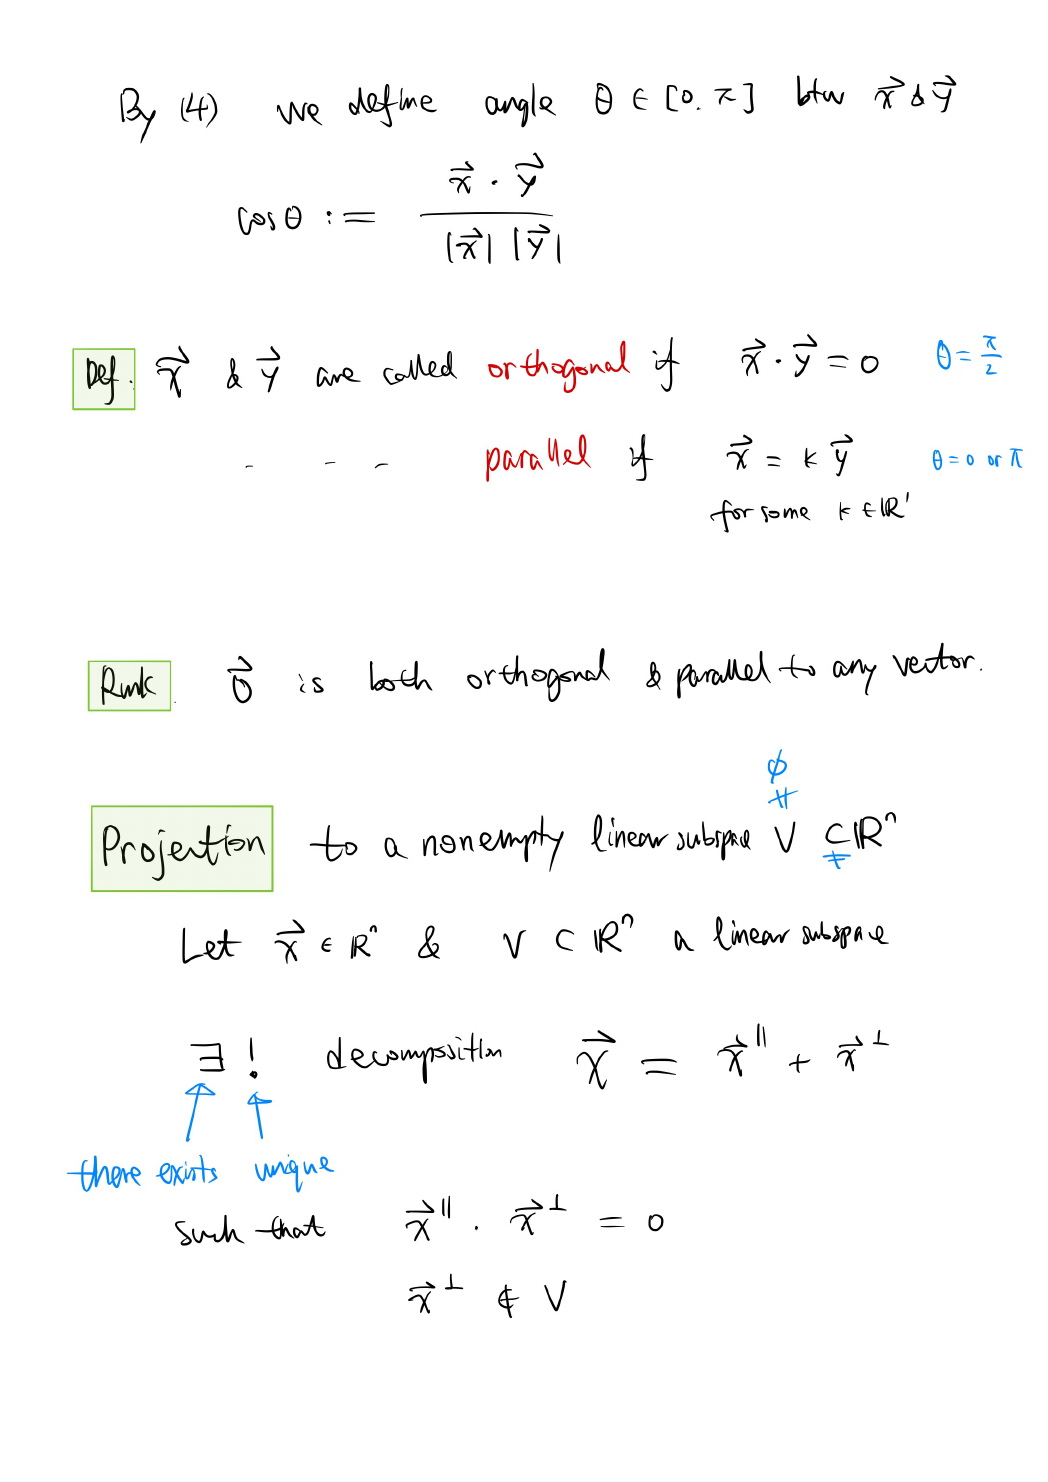 By (4) we define angle θ ∈ [0. π] btw x⃗ & y⃗
cosθ := x⃗ · y⃗ / |x⃗| |y⃗|
Def. x⃗ & y⃗ are called orthogonal if x⃗ · y⃗ = 0 θ = π/2
- - - parallel if x⃗ = k y⃗ θ = 0 or π
for some k ∈ ℝ¹
Rmk. 0⃗ is both orthogonal & parallel to any vector.
ϕ
≠
Projection to a nonempty linear subspace V ⊊ ℝⁿ
Let x⃗ ∈ ℝⁿ & V ⊂ ℝⁿ a linear subspace
∃ ! decomposition x⃗ = x⃗^∥ + x⃗^⊥
there exists unique
such that x⃗^∥ · x⃗^⊥ = 0
x⃗^⊥ ∉ V